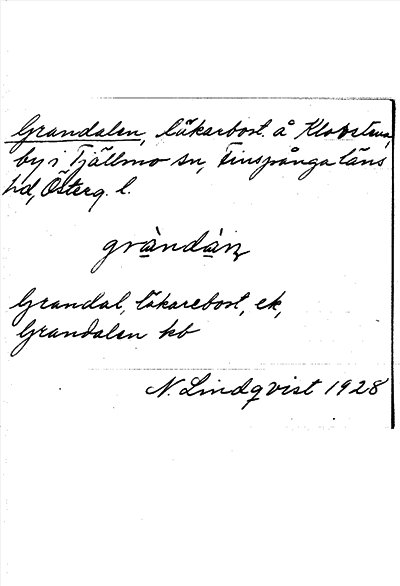 Grandalen, läkarbost. å Klovstena,
by i Tjällmo sn, Finspånga läns
hd, Österg. l.
gràndàn
Grandal, läkarebost, ek,
Grandalen kb
N. Lindqvist 1928